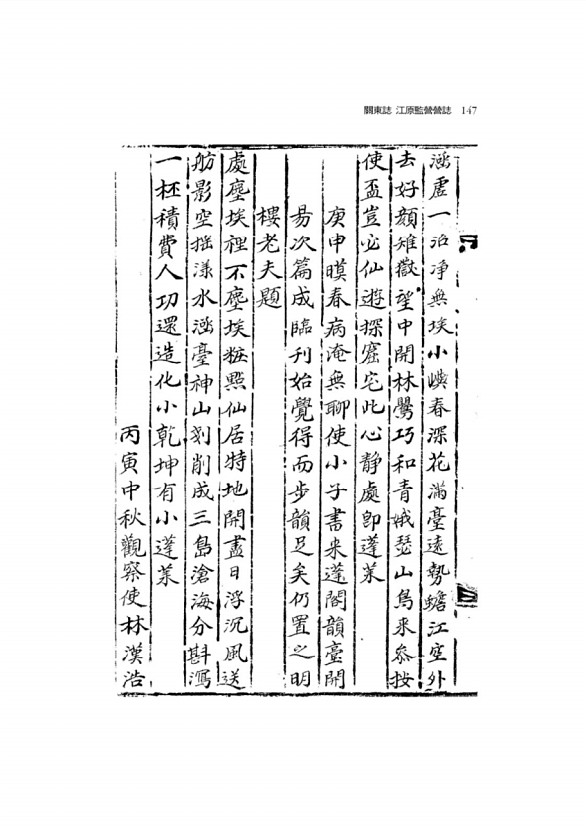 關東誌 江原監營營誌 147
涵虛一泊净無埃小嶼春深花滿臺遠勢蟾江空外
去好顔雉嶽望中開林鶯巧和青娥瑟山鳥来叅按
使盃豈必仙遊探窟宅此心静處卽蓬莱
庚申暮春病淹無聊使小子書来蓬閣韻臺開
易次篇成臨刊始覺得而步韻足矣仍置之明
樓老夫題
處塵埃裡不塵埃粧㸃仙居特地開盡日浮沉風送
舫影空拖漾水涵臺神山剗削成三島滄海分斟瀉
一杯積費人功還造化小乾坤有小蓬莱
丙寅中秋觀察使林漢浩